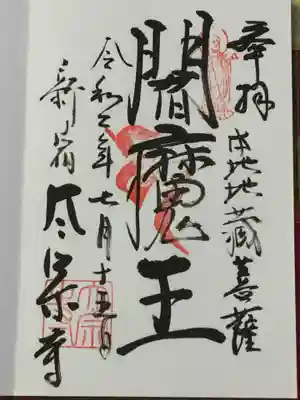 奉拝
本地地藏菩薩
閻魔王
令和二年七月十五日
新宿太宗寺